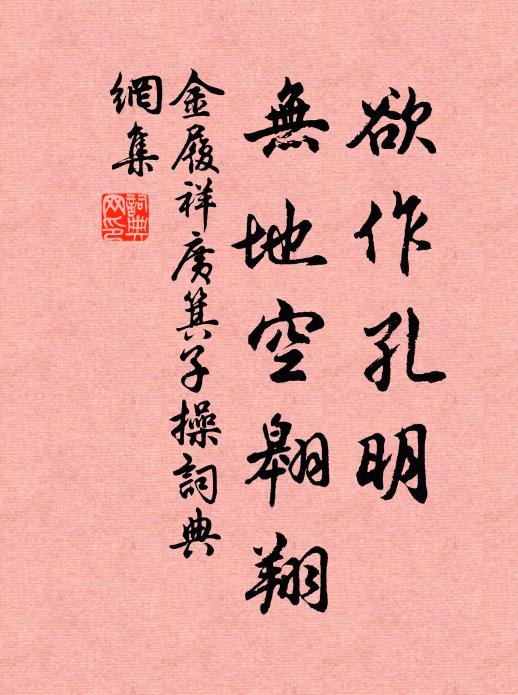 欲作孔明
無地空翱翔
金履祥廣箕子操詞典
網集
詞典網印